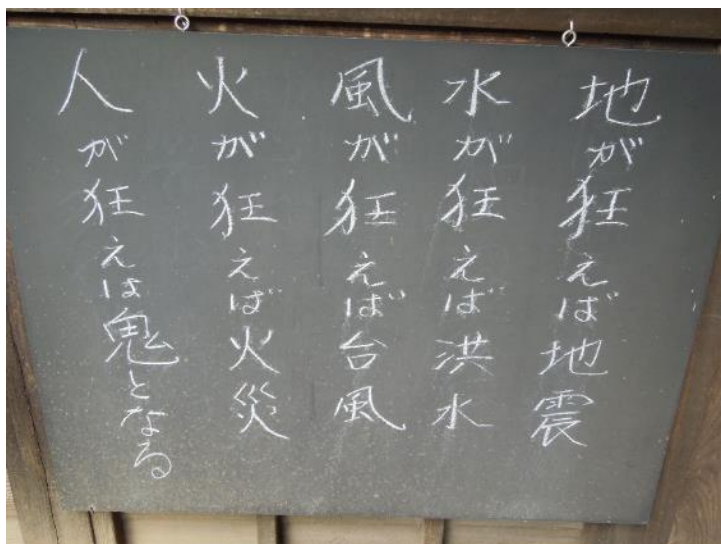 地が狂えば地震
水が狂えば洪水
風が狂えば台風
火が狂えば火災
人が狂えは鬼となる